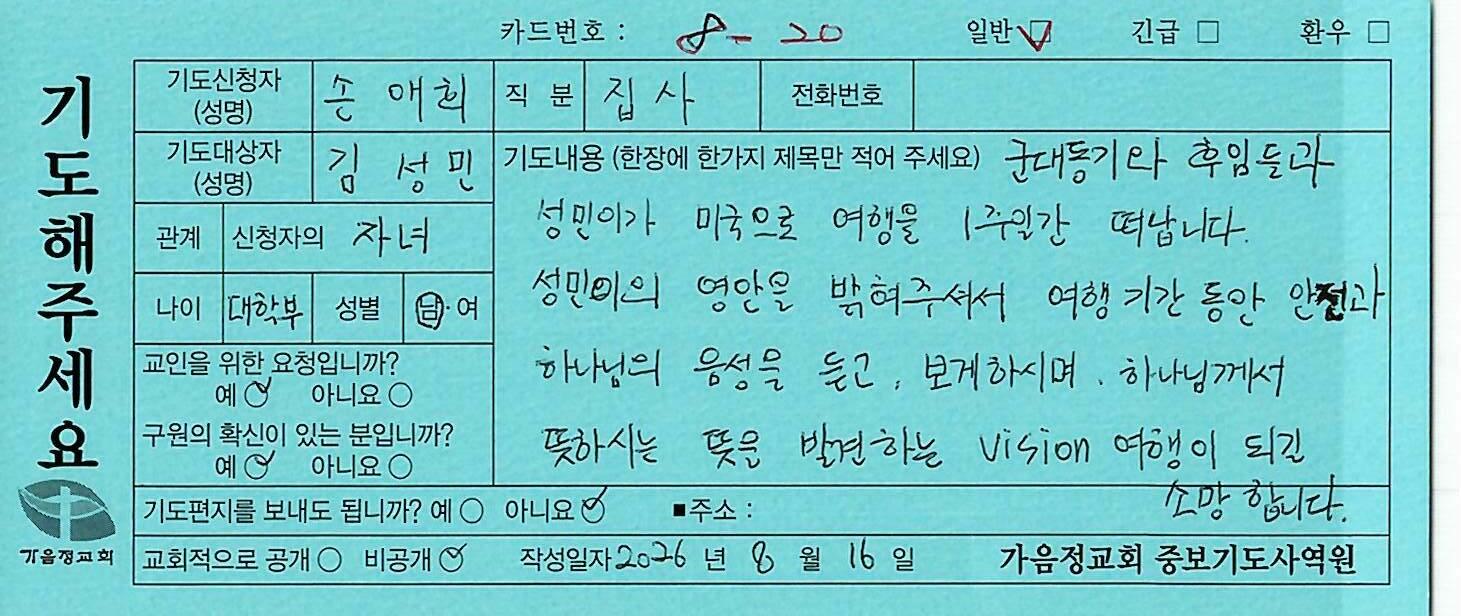 카드번호 : 8-20 일반 ☑ 긴급 □ 환우 □
기도해주세요
기도신청자 (성명) 손애희 직분 집사 전화번호
기도대상자 (성명) 김성민
관계 신청자의 자녀
나이 대학부 성별 남·여
교인을 위한 요청입니까?
예 ✓ 아니요 ○
구원의 확신이 있는 분입니까?
예 ✓ 아니요 ○
기도내용 (한장에 한가지 제목만 적어 주세요) 군대동기와 후임들과
성민이가 미국으로 여행을 1주일간 떠납니다.
성민이의 영안을 밝혀주셔서 여행기간 동안 안전과
하나님의 음성을 듣고, 보게하시며, 하나님께서
뜻하시는 뜻을 발견하는 vision 여행이 되길
소망합니다.
기도편지를 보내도 됩니까? 예 ○ 아니요 ✓ ■주소 :
교회적으로 공개 ○ 비공개 ✓ 작성일자 2026 년 8 월 16 일 가음정교회 중보기도사역원
가음정교회